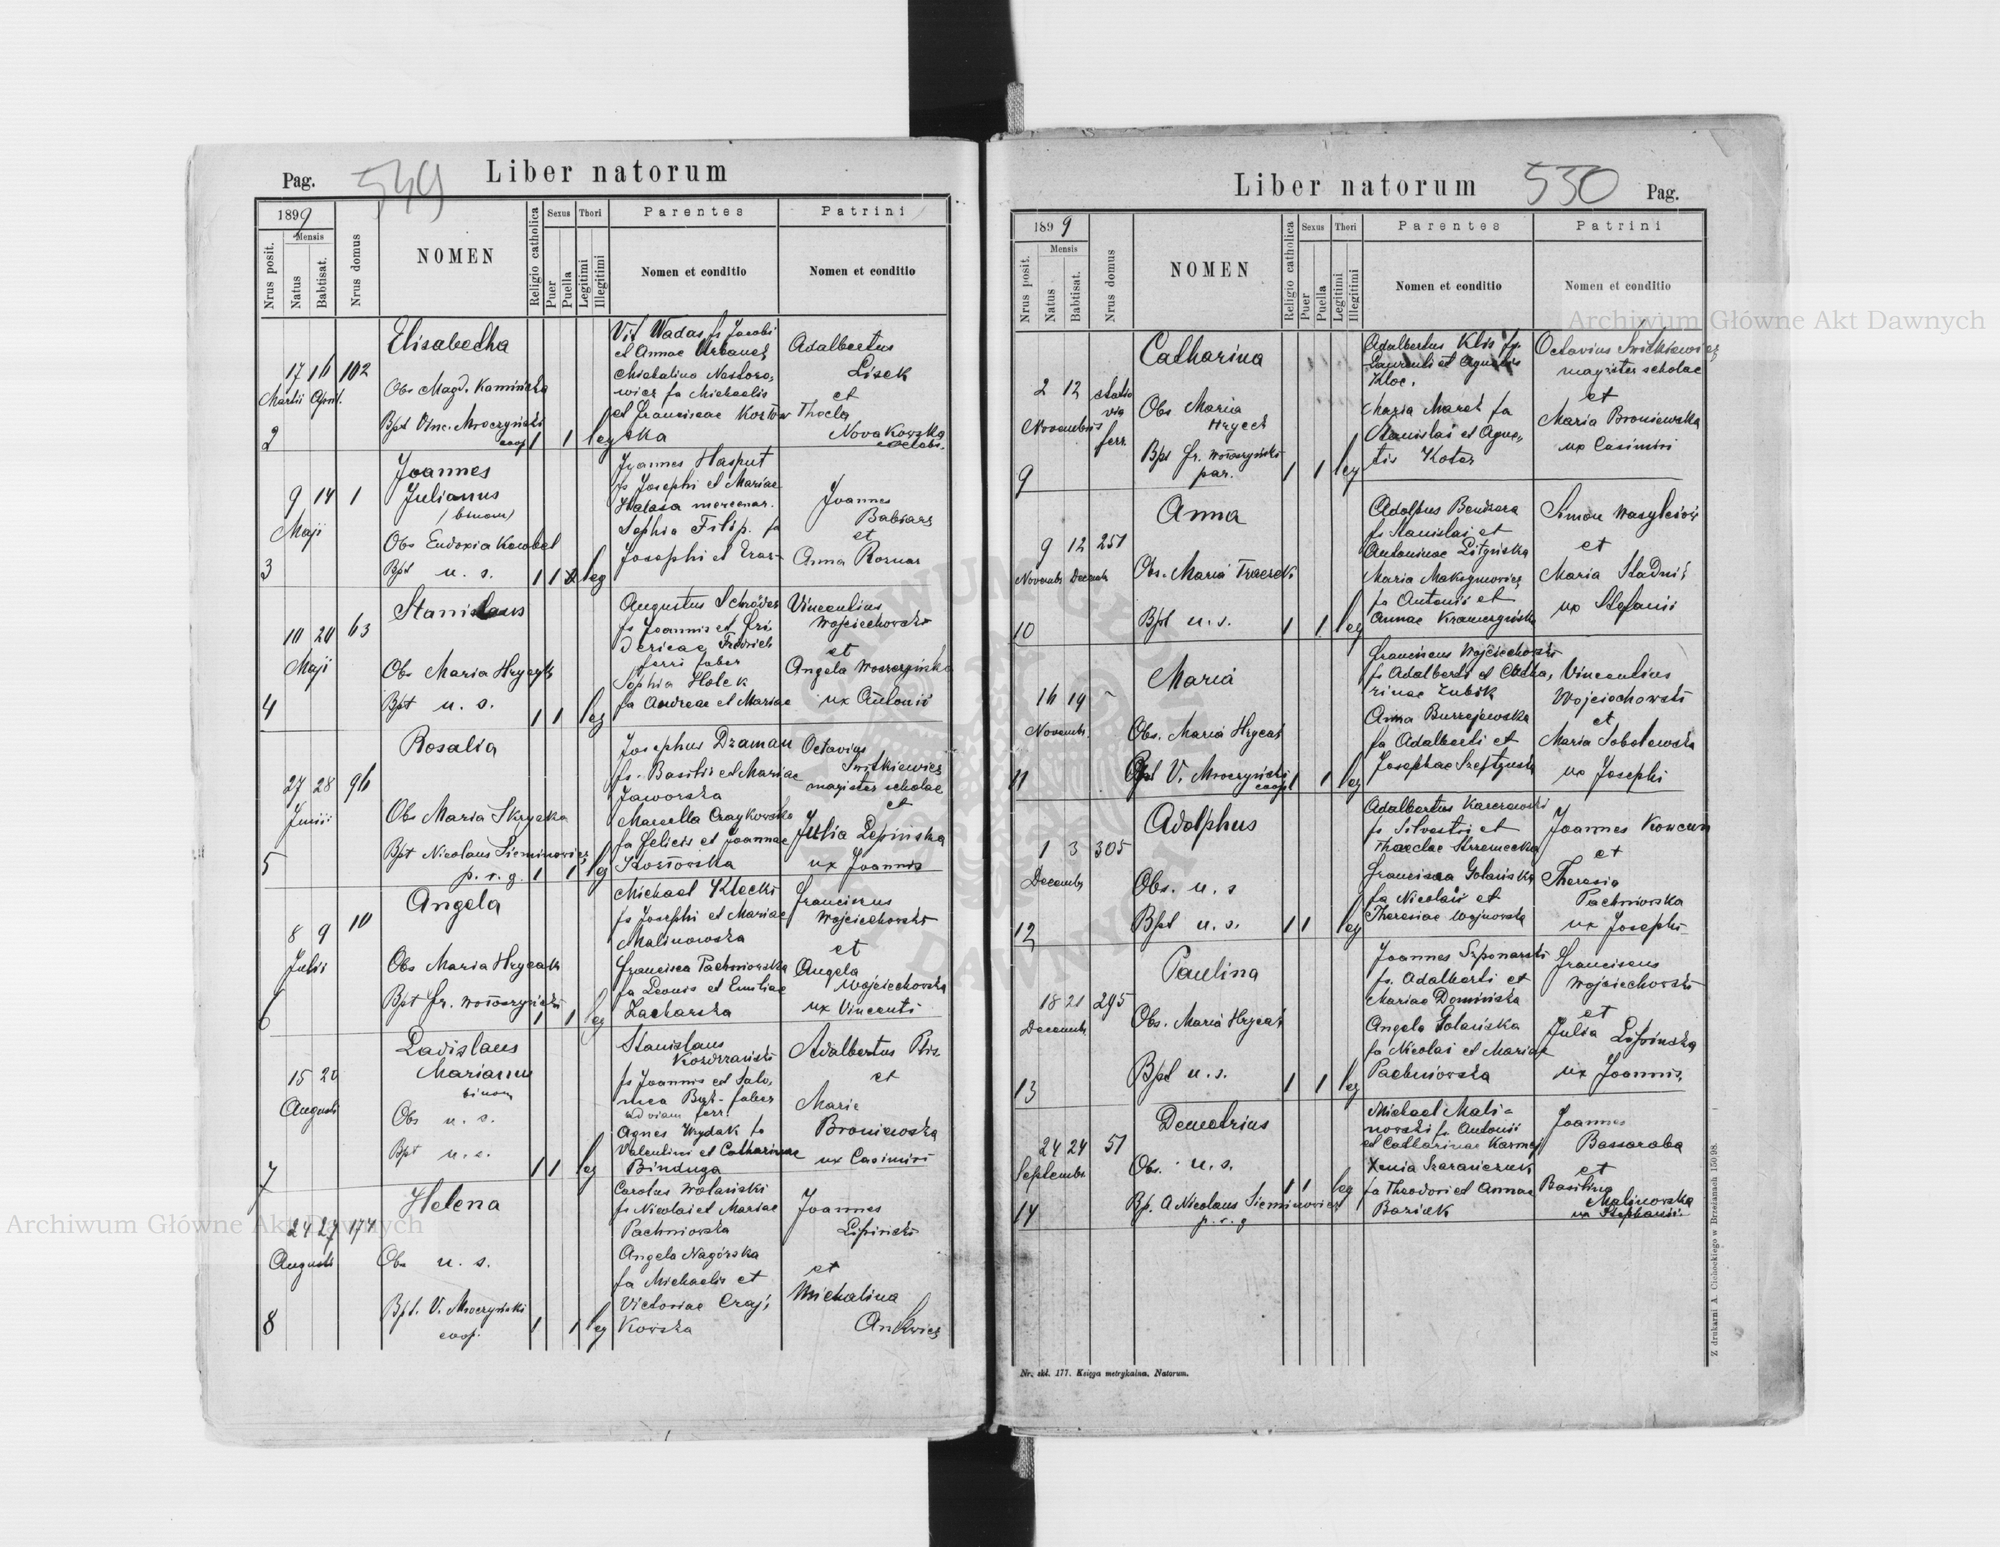 Pag. 549 Liber natorum
1899
Nrus posit.
Mensis
Natus
Babtisat.
Nrus domus
NOMEN
Religio catholica
Sexus
Puer
Puella
Thori
Legitimi
Illegitimi
Parentes
Nomen et conditio
Patrini
Nomen et conditio
2
17 16 102
Martii April.
Elisabetha
Obs Magd. Kamińska
Bpt Vinc. Mroczyński
coop
1 1 leg
Vit Wadas fs Jacobi
et Annae Urbanek
Michalina Nestoro-
wicz fa Michaelis
et Franciscae Kozłow
ska
Adalbertus
Lisek
et
Thecla
Novakowska
3
9 14 1
Maji
Joannes
Julianus
(binom)
Obs Eudoxia
Bpt u. s.
1 1 leg
Joannes Hasput
fs Josephi et Mariae
Halasa mercenar.
Sophia Filip. fa
Josephi et
Joannes
Babiarz
et
Anna
4
10 20 63
Maji
Stanislaus
Obs Maria Hrycyk
Bpt u. s.
1 1 leg
Augustus Schröder
fs Joannis et Fri
dericae Fridrich
ferri faber
Sophia Holek
fa Andreae et Mariae
Vincentius
Wojciechowski
et
Angela
ux Antonii
5
27 28 96
Junii
Rosalia
Obs Maria Skrycka
Bpt Nicolaus Sieminowicz
p. r. g. 1 1 leg
Josephus Dzaman
fs. Basilii et Mariae
Jaworska
Marcella Czaykowska
fa Felicis et Joannae
Kozłowska
Octavius
Switkiewicz
magister scholae
et
Julia Lepińska
ux Joannis
6
8 9 10
Julii
Angela
Obs Maria Hrycak
Bpt Fr.
1 1 leg
Michael Klecki
fs Josephi et Mariae
Malinowska
Francisca Pachniowska
fa Leonis et Emiliae
Zacharska
Franciscus
Wojciechowski
et
Angela
Wojciechowska
ux Vincenti
7
15 20
Augusti
Ladislaus
Marianus
binom
Obs u. s.
Bpt u. s.
1 1 leg
Stanislaus
fs Joannis et Salo-
mea faber
ad viam ferr.
Agnes Wydak fa
Valentini et Catharinae
Binduga
Adalbertus
et
Maria
Broniewska
ux Casimiri
8
24 27 174
Augusti
Helena
Obs u. s.
Bpt. V. Mroczyński
coop.
1 1 leg
Carolus Wolański
fs Nicolai et Mariae
Pachniowska
Angela Nagórska
fa Michaelis et
Victoriae Czaj-
kowska
Joannes
Lipiński
et
Michalina
Liber natorum 550 Pag.
1899
Nrus posit.
Mensis
Natus
Babtisat.
Nrus domus
NOMEN
Religio catholica
Sexus
Puer
Puella
Thori
Legitimi
Illegitimi
Parentes
Nomen et conditio
Patrini
Nomen et conditio
9
2 12 statio
via
ferr.
Novembris
Catharina
Obs Maria
Hrycek
Bpt Fr.
par. 1 1 leg
Adalbertus Klis fs
Laurenti et Agnetis
Kloc.
Maria Marek fa
Stanislai et Agne-
tis Kotar
Octavius Switkiewicz
magister scholae
et
Maria Broniewska
ux Casimiri
10
9 12 251
Novemb Decemb
Anna
Obs. Maria
Bpt u. s. 1 1 leg
Adolfus Bendzera
fs Stanislai et
Antoninae Lityńska
Maria Maksymowicz
fa Antonii et
Annae
Simon Wasylciów
et
Maria Stadnik
ux Stefanii
11
16 19 -
Novemb.
Maria
Obs. Maria Hrycak
Bpt V. Mroczyński
coop 1 1 leg
Franciscus Wojciechowski
fs Adalberti et Catha-
rinae Zubik
Anna
fa Adalberti et
Josephae
Vincentius
Wojciechowski
et
Maria Sobolewska
ux Josephi
12
1 3 305
Decemb
Adolphus
Obs. u. s
Bpt u. s. 1 1 leg
Adalbertus
fs Silvestri et
Theclae
Francisca Golańska
fa Nicolai et
Theresiae Wojnowska
Joannes
et
Theresia
Pachniowska
ux Josephi
13
18 21 295
Decemb
Paulina
Obs. Maria Hrycak
Bpt u. s. 1 1 leg
Joannes Szponarski
fs. Adalberti et
Mariae Domińska
Angela Golańska
fa Nicolai et Mariae
Pachniowska
Franciscus
Wojciechowski
et
Julia Lipińska
ux Joannis
14
24 24 51
Septembr
Demetrius
Obs. u. s.
Bp. A Nicolaus Sieminowicz
p. r. g
1 1 leg
Michael Mali-
nowski fs Antonii
et Catharinae
Xenia
fa Theodori et Annae
Joannes
Bassaraba
et
Basilina
Malinowska
ux Stephanii
Nr. skl. 177. Księga metrykalna. Natorum.
Z drukarni A. Cichockiego w Brzeżanach 150/98.
Archiwum Główne Akt Dawnych
Archiwum Główne Akt Dawnych